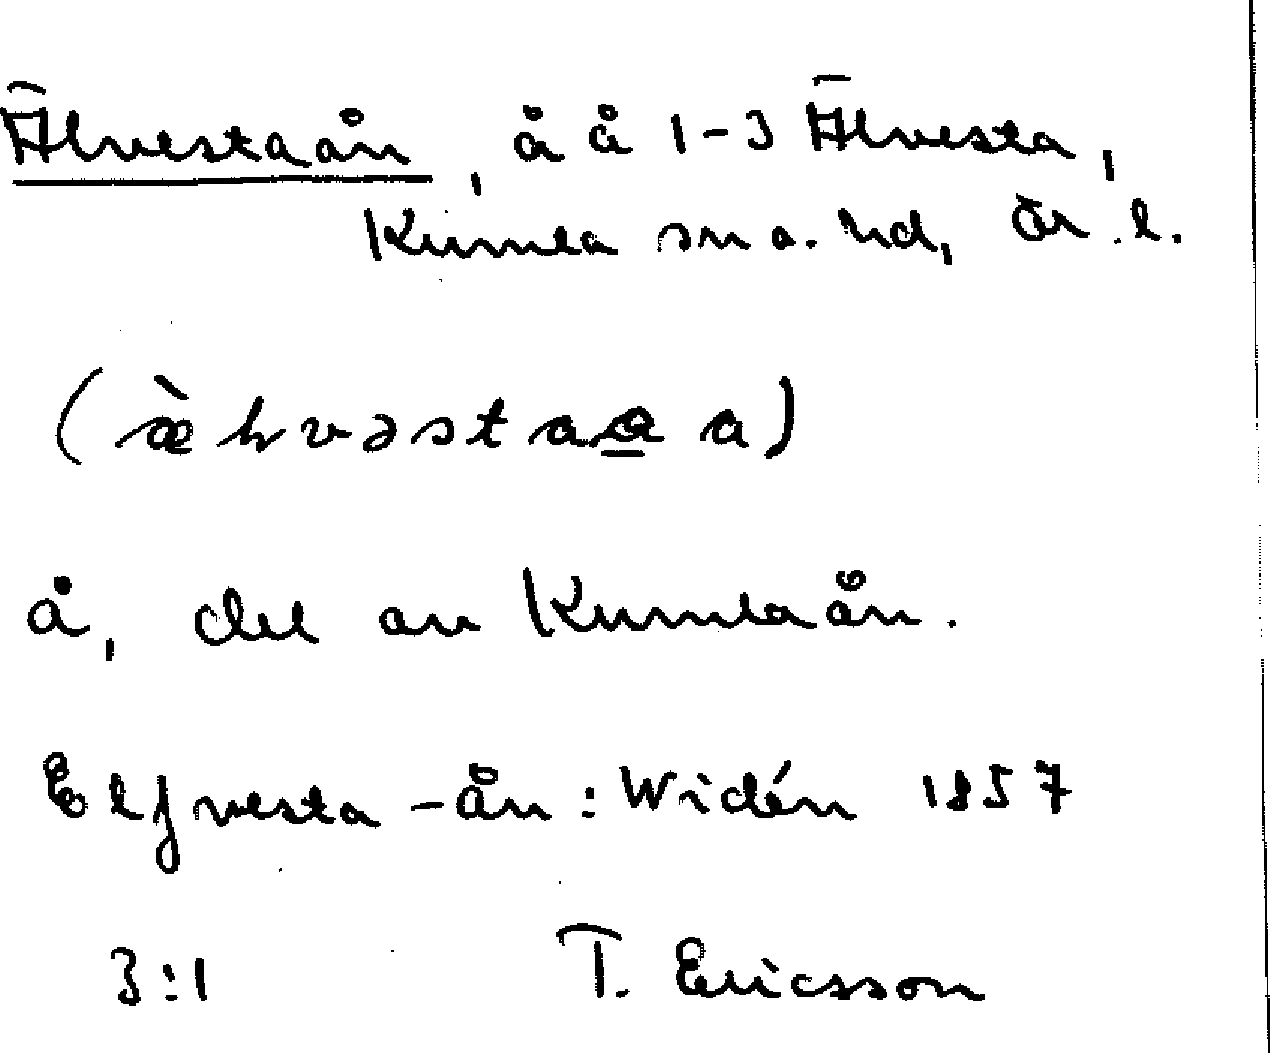 Älvestaån, å å 1-3 Älvesta,
Kumla sn o. hd, Ör. l.
å, del av Kumlaån.
Elfvesta-ån: Widén 1857
3:1 T. Ericsson